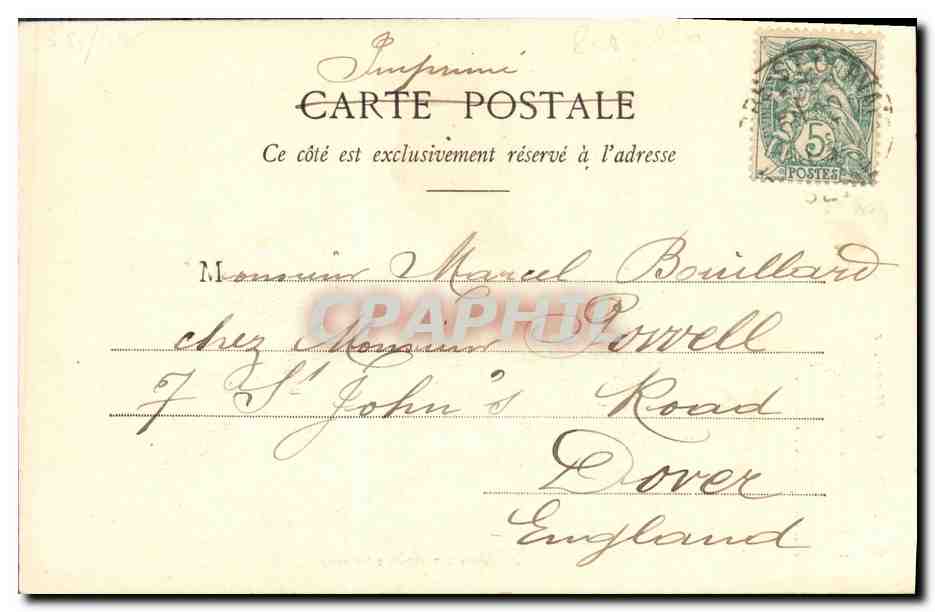 Imprimé
CARTE POSTALE
Ce côté est exclusivement réservé à l'adresse
5c
POSTES
Monsieur Marcel Bouillard
CPAPHIL
chez Monsieur Powell
7 St John's Road
Dover
England